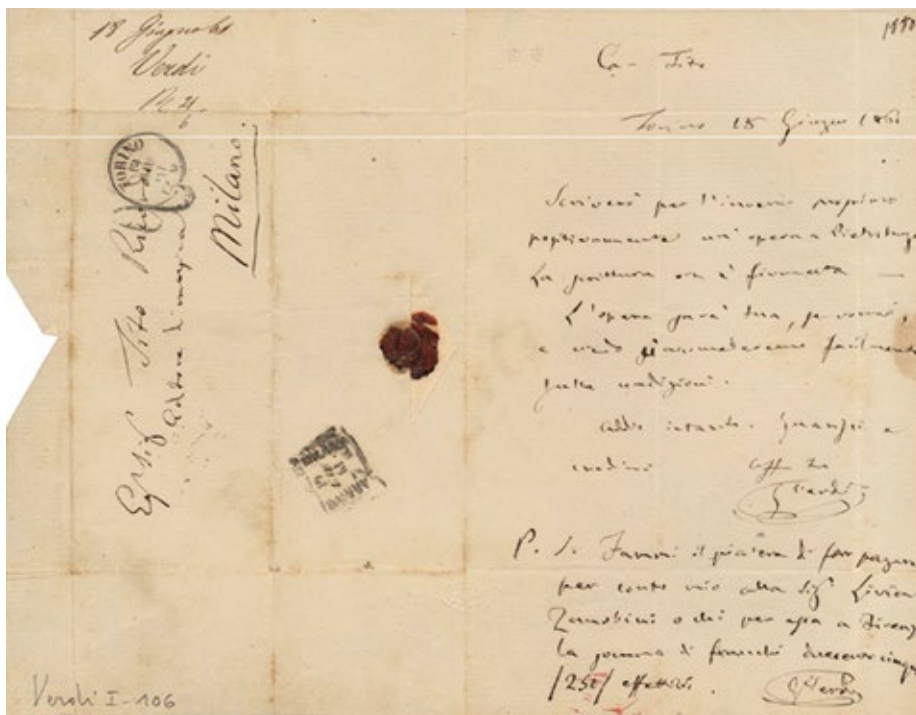 18 Giugno 61
Verdi
R 21/6
TORINO
Egr Sig Tito
Editore di musica
Milano.
MILANO
Verdi I-106
Ca- Tito
Torino 18 Giugno 1861
Scriverò per l'inverno prossimo
positivamente un'opera a Pietrobur
La scrittura è firmata —
L'opera sarà tua, se vorrai,
e credo facilmente
sulle condizioni.
Addio intanto.
credimi aff tuo
G Verdi
P. S. Fammi il piacere di far pagare
per conto mio alla Sig.ª Livia
Zanobini o chi per essa a Firenze
la somma di franchi
/250/ effettivi.
G Verdi